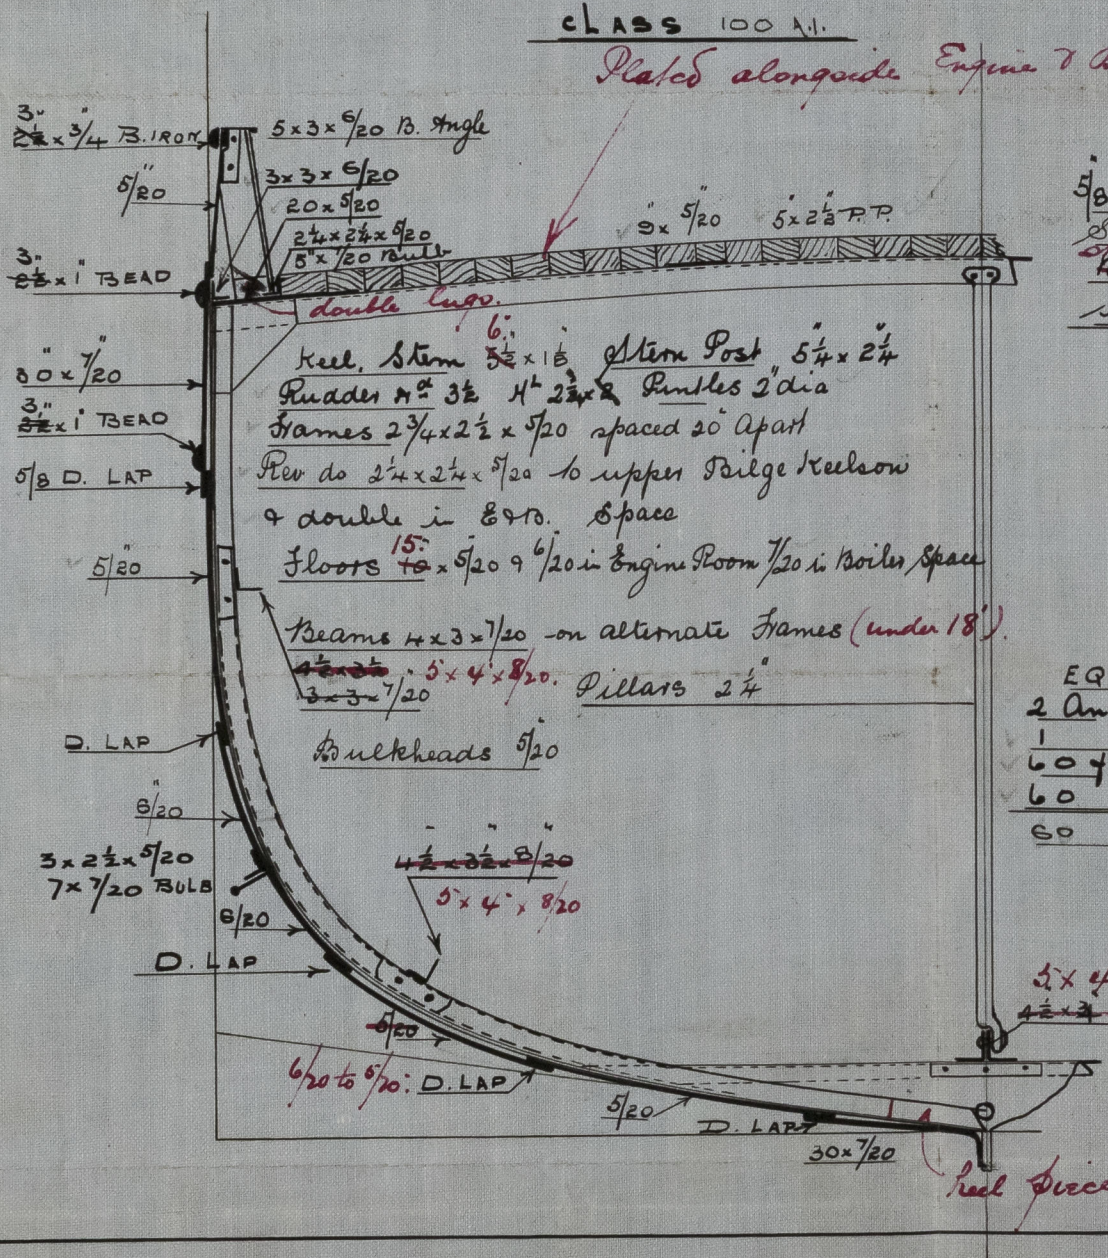 CLASS 100 A.1.
Plated alongside Engine &
3"
2½ x ¾ B. IRON
5 x 3 x 6/20 B. Angle
5/20
3 x 3 x 6/20
20 x 5/20
2¼ x 2¼ x 5/20
5" x 7/20 Bulb
9 x 5/20
5 x 2½ P.P.
3"
2½ x 1" BEAD
double lugs.
6"
Keel, Stem 5½ x 1⅛ Stern Post 5¼ x 2¼
Rudder Hd 3½ Hl 2½ x 2 Pintles 2" dia
30 x 7/20
3"
2½ x 1" BEAD
Frames 2¾ x 2½ x 5/20 spaced 20" Apart
5/8 D. LAP
Rev do 2¼ x 2¼ x 5/20 to upper Bilge Keelson
& double in E&B. Space
15"
Floors 10 x 5/20 & 6/20 in Engine Room 7/20 in Boiler Space
5/20
Beams 4 x 3 x 7/20 on alternate Frames (under 18').
4½ x 3½ 5 x 4 x 8/20.
3 x 3 x 7/20
Pillars 2¼"
D. LAP
Bulkheads 5/20
6/20
3 x 2½ x 5/20
7 x 7/20 BULB
4½ x 3½ x 8/20
5 x 4 x 8/20
6/20
D. LAP
5/20
6/20 to 5/20: D. LAP
5/20
D. LAP
30 x 7/20
heel piece
5/8
EQ
2 An
1
60 f
60
60
5 x 4
4½ x 3